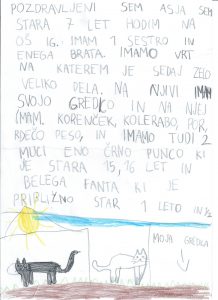 POZDRAVLJENI SEM ASJA SEM
STARA 7 LET HODIM NA
OŠ IG. IMAM 1 SESTRO IN
ENEGA BRATA. IMAMO VRT
NA KATEREM JE SEDAJ ZELO
VELIKO DELA. NA NJIVI IMAM
SVOJO GREDICO IN NA NJEJ
IMAM. KORENČEK, KOLERABO, POR,
RDEČO PESO, IN IMAMO TUDI 2
MUCI ENO ČRNO PUNCO KI
JE STARA 15,16 LET IN
BELEGA FANTA KI JE
PRIBLIŽNO STAR 1 LETO IN 1/2
MOJA GREDICA